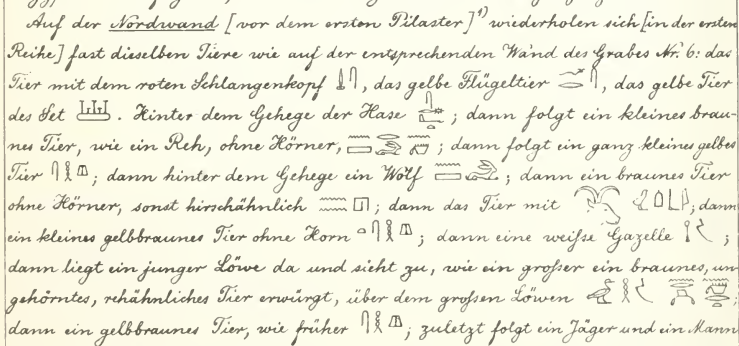 Auf der Nordwand [vor dem ersten Pilaster]⁴⁾ wiederholen sich [in der ersten
Reihe] fast dieselben Tiere wie auf der entsprechenden Wand des Grabes Nr. 6: das
Tier mit dem roten Schlangenkopf , das gelbe Flügeltier , das gelbe Tier
des Set . Hinter dem Gehege der Hase ; dann folgt ein kleines brau-
nes Tier, wie ein Reh, ohne Hörner, ; dann folgt ein ganz kleines gelbes
Tier ; dann hinter dem Gehege ein Wolf ; dann ein braunes Tier
ohne Hörner, sonst hirschähnlich ; dann das Tier mit ; dann
ein kleines gelbbraunes Tier ohne Horn ; dann eine weiße Gazelle ;
dann liegt ein junger Löwe da und sieht zu, wie ein großer ein braunes, un-
gehörntes, rehähnliches Tier erwürgt, über dem großen Löwen ;
dann ein gelbbraunes Tier, wie früher ; zuletzt folgt ein Jäger und ein Mann